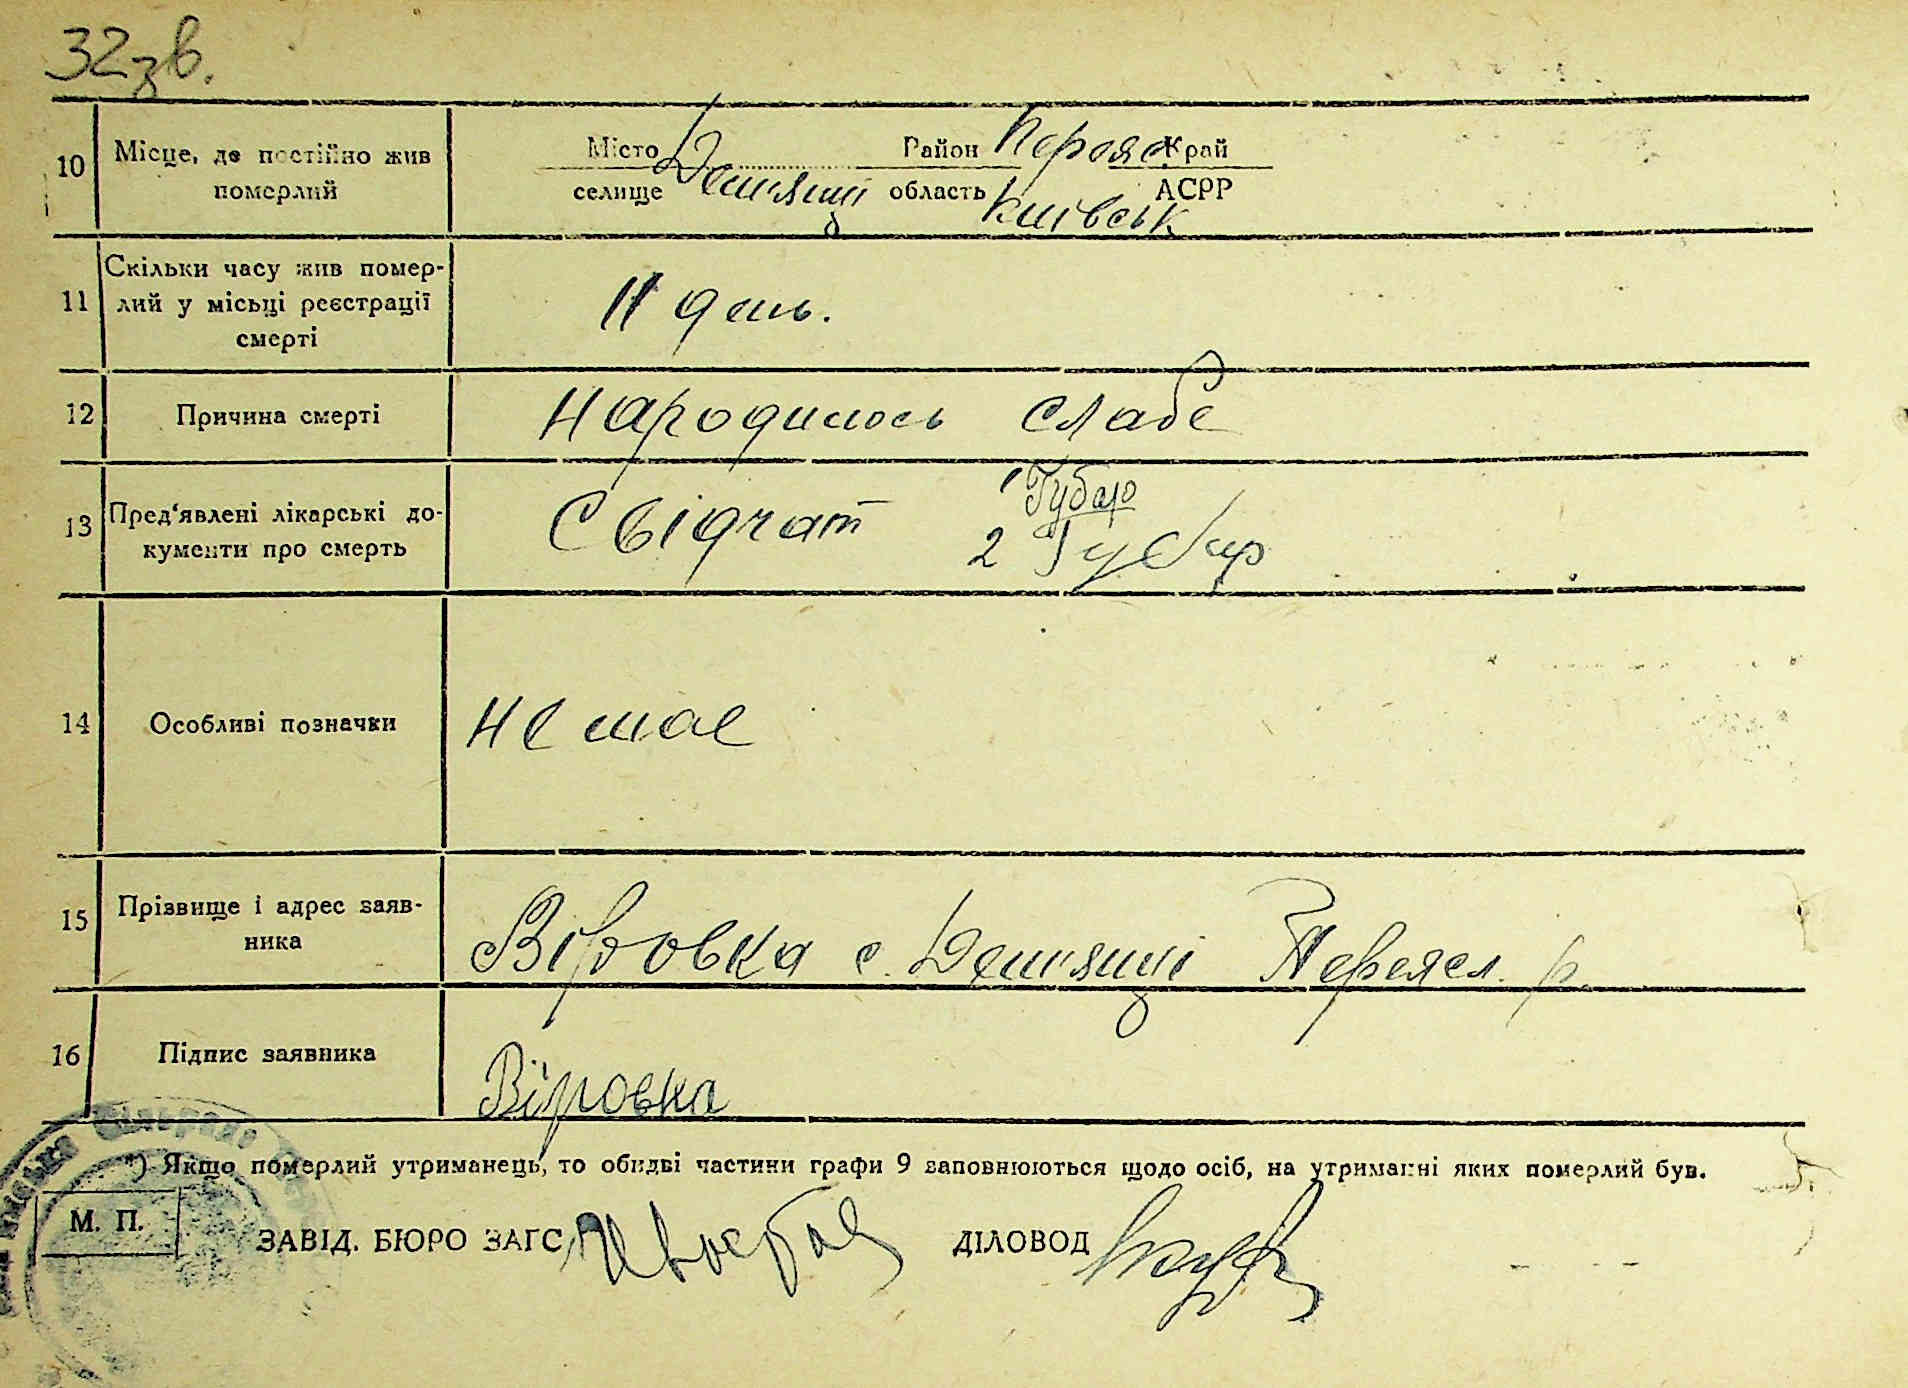 32зв.
10 Місце, де постійно жив померлий
Місто Район Переяс Край
селище Демянці область Київськ АСРР
11 Скільки часу жив помер-
лий у місьці реєстрації
смерті
11 день.
12 Причина смерті Народилось слабе
13 Пред‘явлені лікарські до-
кументи про смерть
Свідчат 1 Губар
2 Губар
14 Особливі позначки Не має
15 Прізвище і адрес заяв-
ника
Віровка с. Демянці Переясл. р.
16 Підпис заявника Віровка
*) Якщо померлий утриманець, то обидві частини графи 9 заповнюються щодо осіб, на утриманні яких померлий був.
М. П.
ЗАВІД. БЮРО ЗАГС ДІЛОВОД